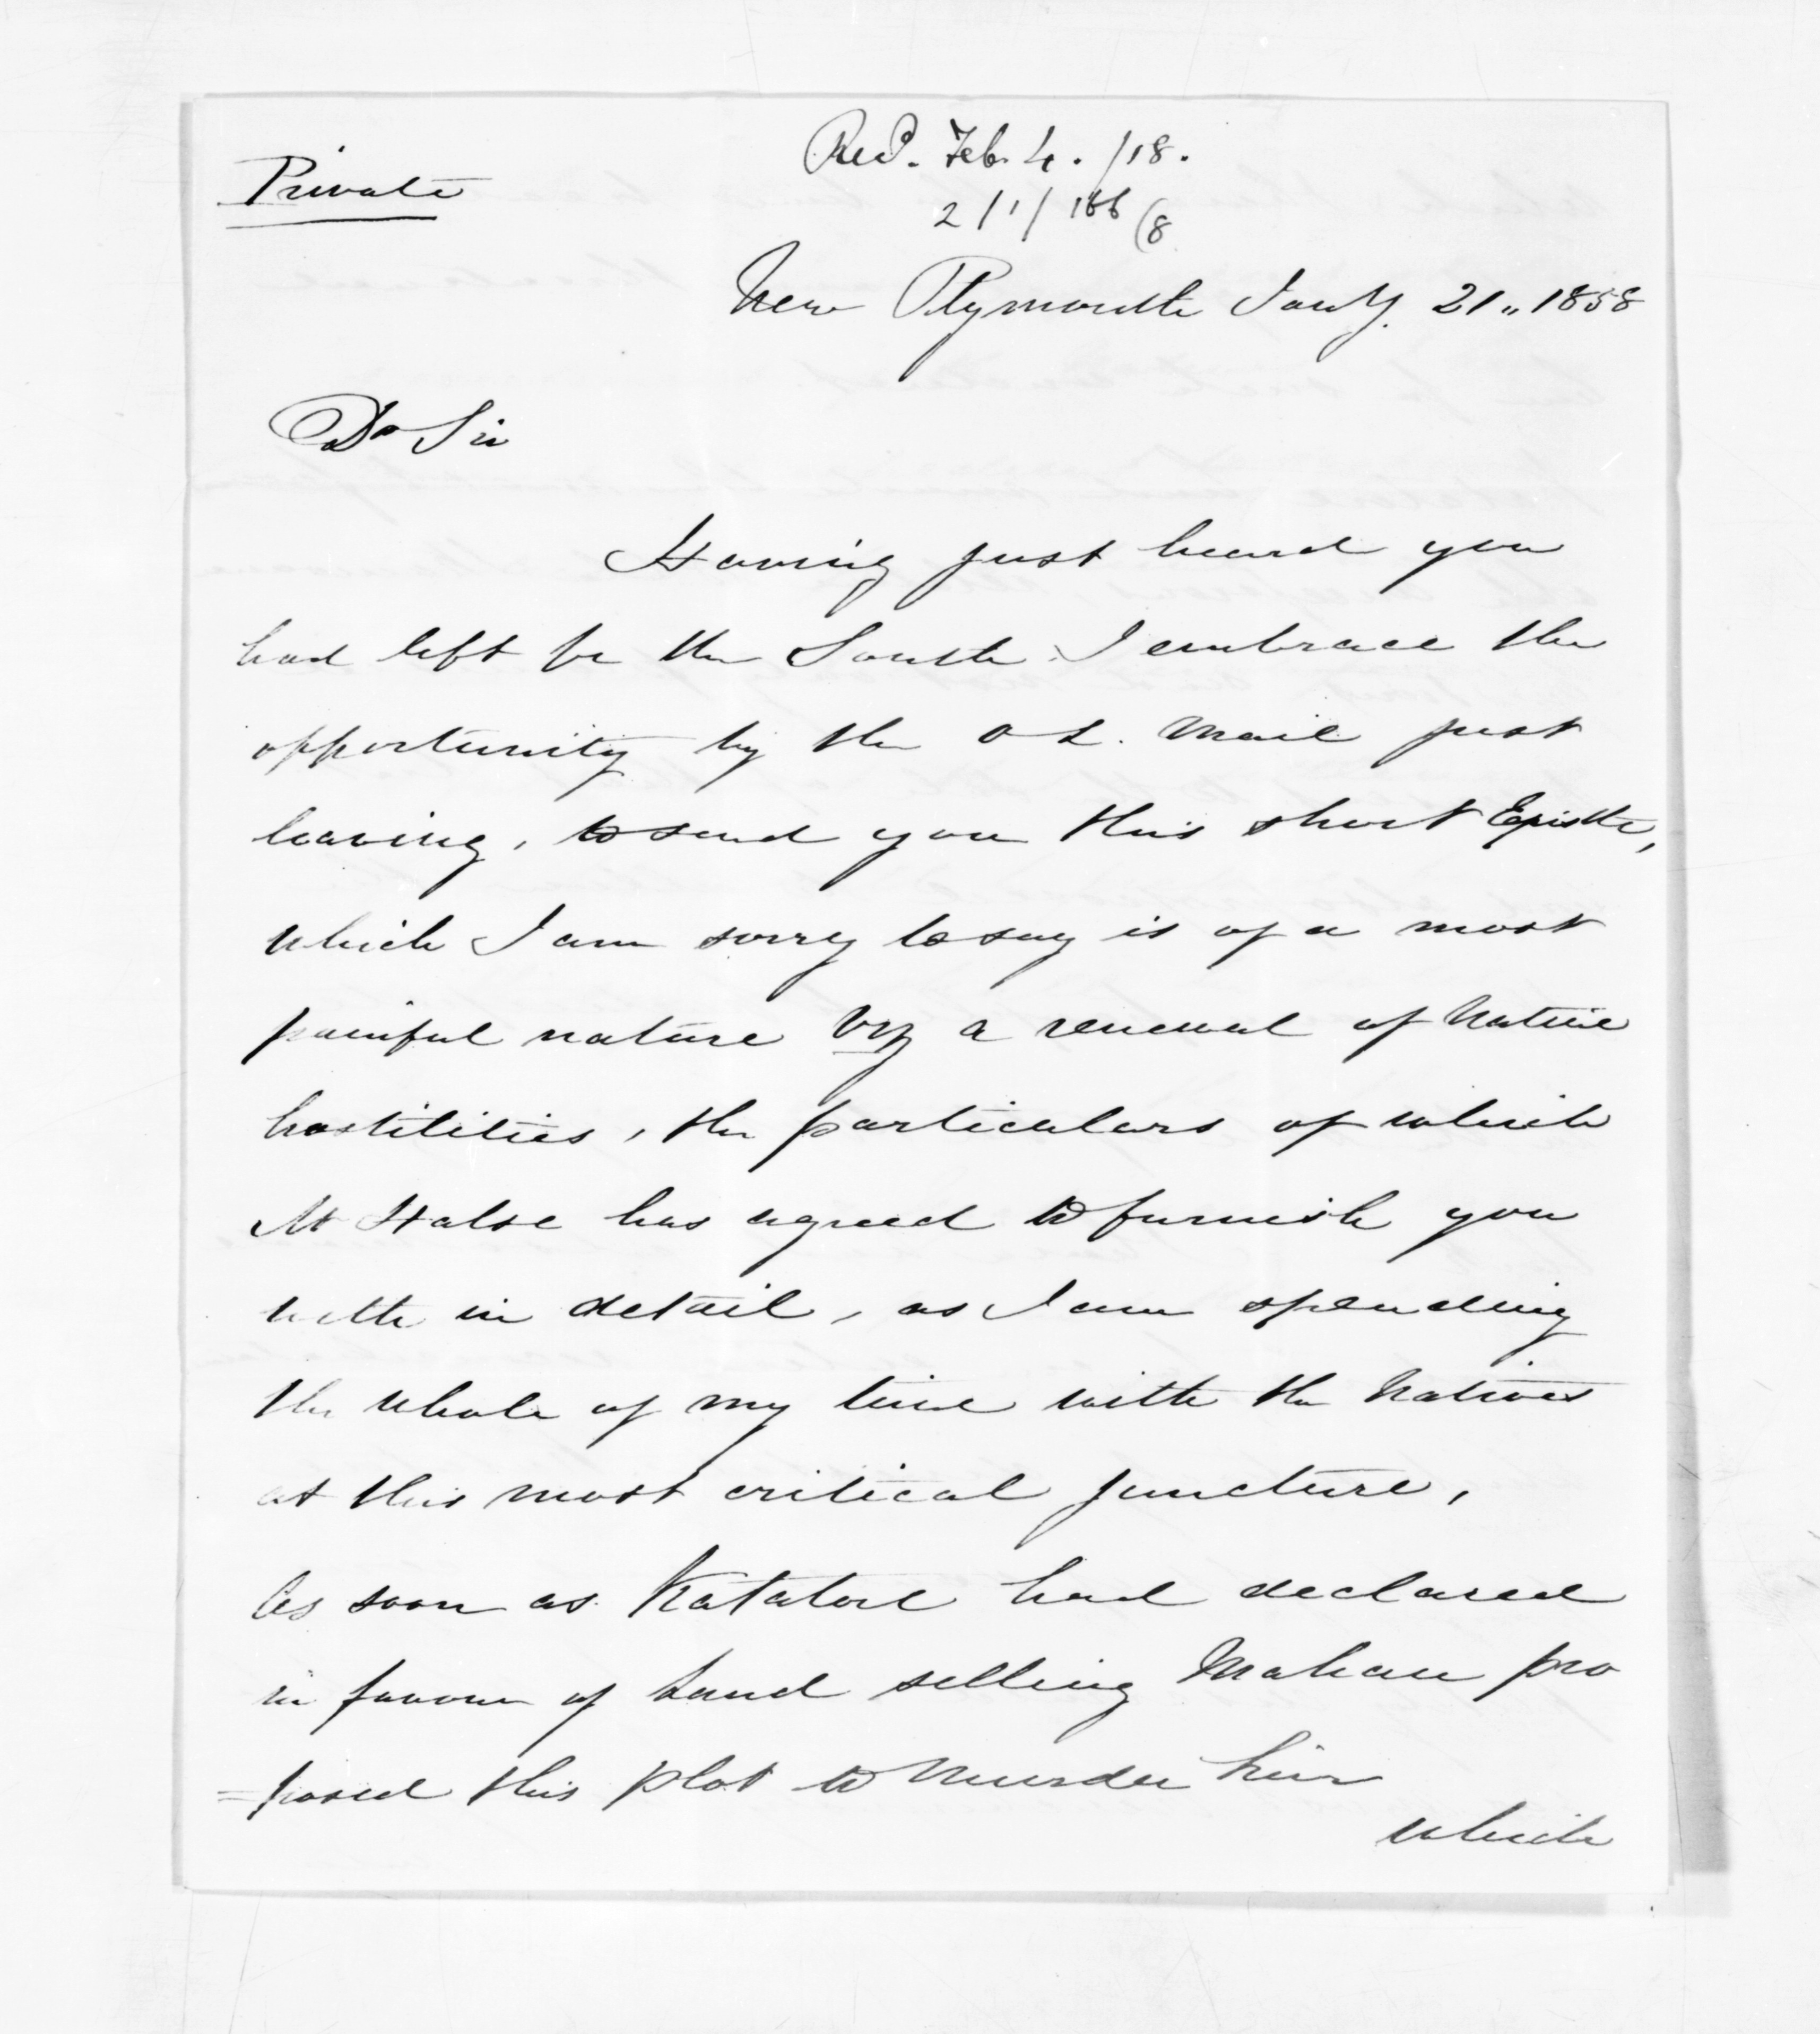 Private
Recd. Feb. 4. /18.
2/1/166 (8
New Plymouth Jany. 21,, 1858
Dr Sir
Having just heard you
had left for the South I embrace the
opportunity by the O L. Mail just
leaving, to send you this short Epistle,
which I am sorry to say is of a most
painful nature viz a renewal of Native
hostilities, the particulars of which
Mr Halse has agreed to furnish you
with in detail, as I am spending
the whole of my time with the Natives
at this most critical juncture,
As soon as Katatore had declared
in favour of Land selling Mahau pro
=posed this plot to Murder him
which